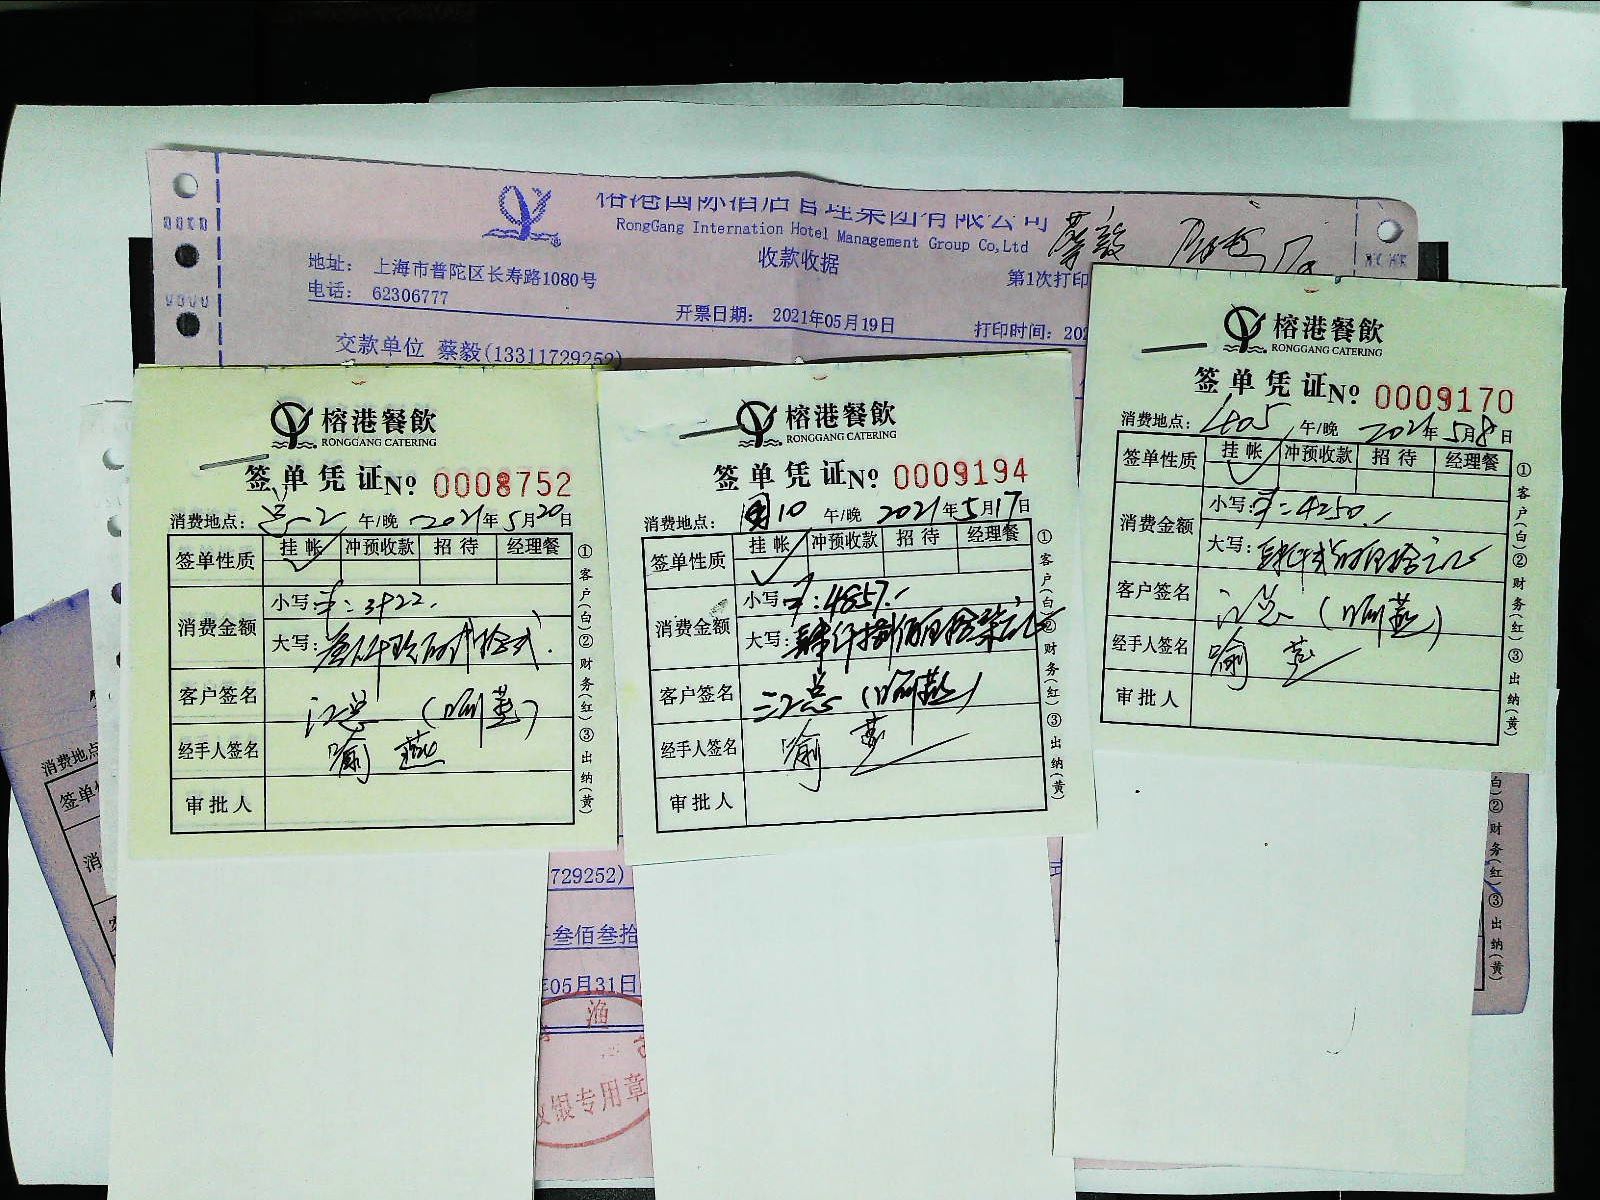 榕港国际酒店管理集团有限公司
RongGang Internation Hotel Management Group Co,Ltd
蔡毅
收款收据
地址： 上海市普陀区长寿路1080号
第1次打印
电话： 62306777
开票日期： 2021年05月19日
打印时间：202
交款单位 蔡毅(13311729252)
榕港餐飲
RONGGANG CATERING
签单凭证№ 0008752
消费地点： 午/晚 2021年5月20日
签单性质 挂帐 冲预收款 招待 经理餐
消费金额
小写： 3922.
大写：叁仟玖佰贰拾贰
客户签名 江总 (喻燕)
经手人签名 喻燕
审批人
①客户(白)②财务(红)③出纳(黄)
榕港餐飲
RONGGANG CATERING
签单凭证№ 0009194
消费地点： 10 午/晚 2021年5月17日
签单性质 挂帐 冲预收款 招待 经理餐
消费金额
小写：4857.
大写：肆仟捌佰伍拾柒元
客户签名 江总 (喻燕)
经手人签名 喻燕
审批人
①客户(白)②财务(红)③出纳(黄)
榕港餐飲
RONGGANG CATERING
签单凭证№ 0009170
消费地点： 405 午/晚 2021年5月8日
签单性质 挂帐 冲预收款 招待 经理餐
消费金额
小写：4250.
大写：肆仟贰佰伍拾元
客户签名 江总 (喻燕)
经手人签名 喻燕
审批人
①客户(白)②财务(红)③出纳(黄)
消费地点
签单
消
729252)
叁佰叁拾
05月31日
渔
银专用章
白)②财务(红)③出纳(黄)